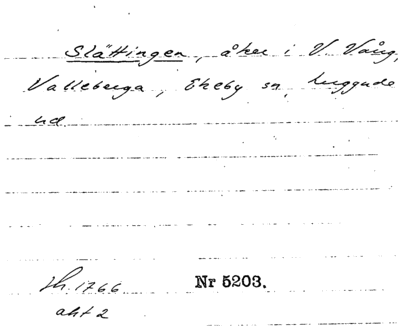 Slättingen, åker i V. Vång,
Valleberga, Ekeby sn, Luggude
hd.
Nr 5203.
1766
akt 2